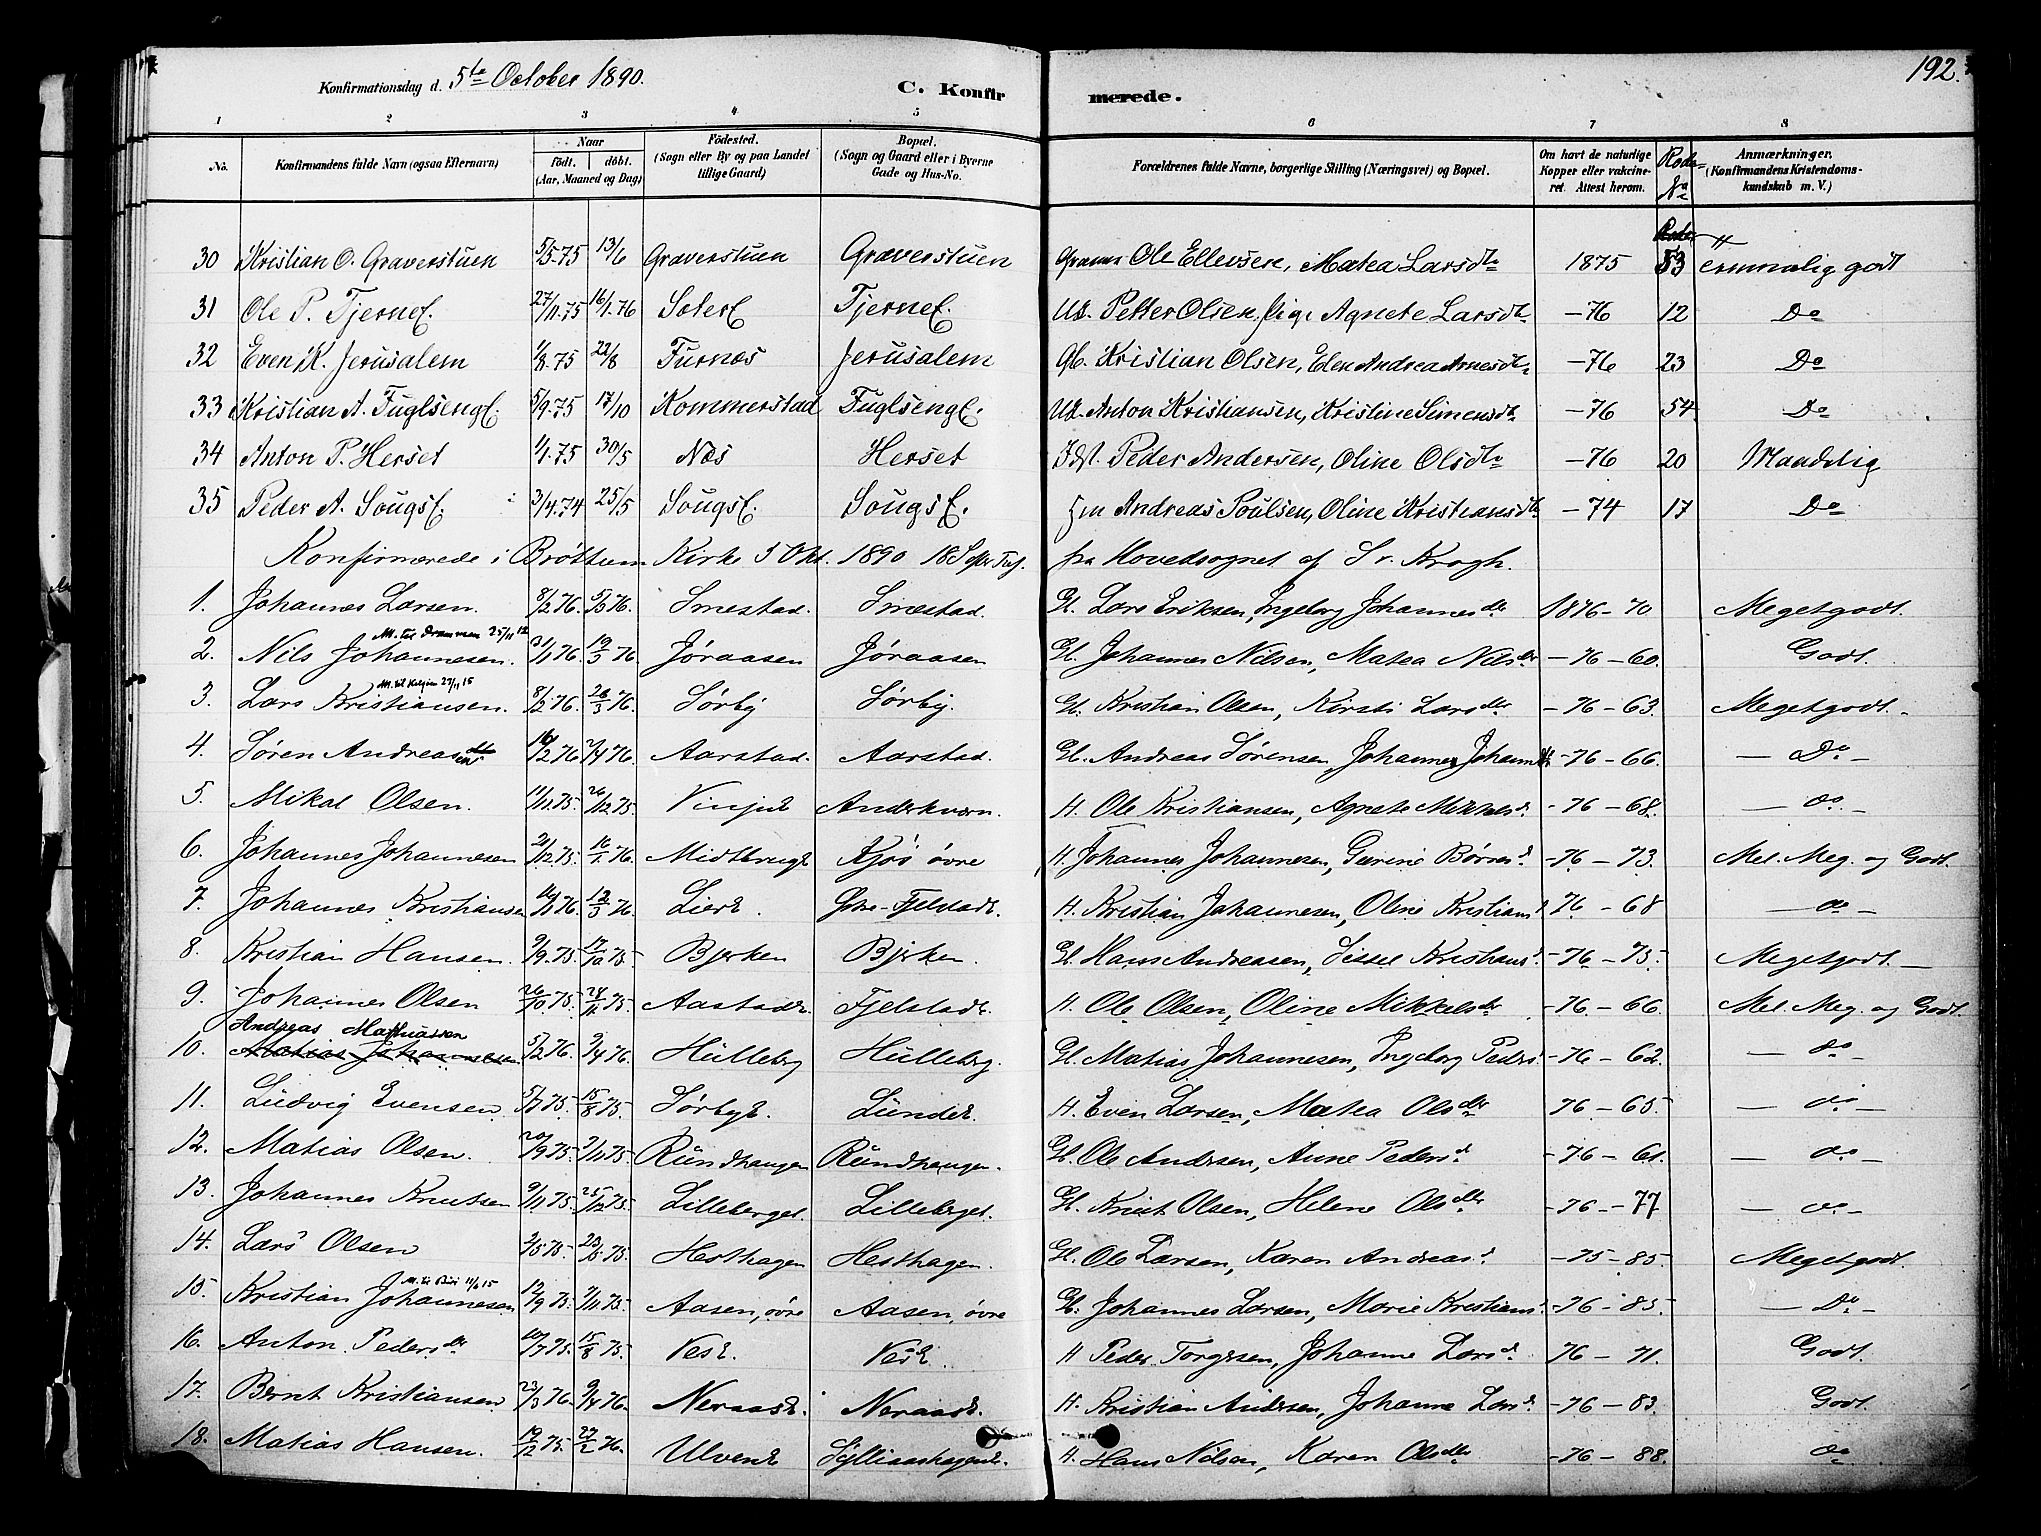 192.
Konfirmationsdag d. 5te October 1890. C. Konfirmerede.
1 2 3 4 5 6 7 8
No. Konfirmandens fulde Navn (ogsaa Efternavn) Naar Födt. döbt. (Aar, Maaned og Dag) Födested. (Sogn eller By og paa Landet tillige Gaard) Bopæl. (Sogn og Gaard eller i Byerne Gade og Hus-No. Forældrenes fulde Navne, borgerlige Stilling (Næringsvei) og Bopæl. Om havt de naturlige Kopper eller vakcineret. Attest herom. Rode= No Anmærkninger, (Konfirmandens Kristendomskundskab m. V.)
30 Kristian O. Graverstuen 5/5.75 13/6 Graverstuen Graverstuen Ole Ellevsen, Matea Larsdtr 1875 53 godt
31 Ole P. Tjernel. 27/11.75 16/1.76 Tjernel. Petter Olsen, Pige Agnete Larsdtr -76 12 Do
32 Even K. Jerusalem 1/8.75 22/8 Furnæs Jerusalem Kristian Olsen, Elen Andrea Arnesdtr -76 23 Do
33 Kristian A. Fuglsengl. 5/9.75 17/10 Kommerstad Fuglsengl. Anton Kristiansen, Kristine Simensdtr -76 54 Do
34 Anton P. Herset 1/1.75 30/5 Næs Herset Peder Andersen, Oline Olsdtr -76 20 Maadelig
35 Peder A. Sougsl. 3/4.74 25/5 Sougsl. Sougsl. Andreas Poulsen, Oline Kristiansdtr -74 17 Do
Konfirmerede i Brøttum Kirke 5 Okt. 1890 fra Hovedsognet af S v. Krogh.
1. Johannes Larsen. 8/2 76. Smestad. Smestad. Gl. Lars Eriksen, Ingeborg Johannesdtr 1876-70 Megetgodt.
M. til Drammen 25/11 12
2. Nils Johannesen. 31/1 76. 19/3 76. Jøraasen Jøraasen Gl. Johannes Nilsen, Matea Nilsdtr -76-60. Godt.
3. Lars Kristiansen. 8/2 76. 26/3 76. Sørby Sørby. Gl. Kristian Olsen, Kirsti Larsdtr -76-63. Megetgodt.-
4. Søren Andreassen 2/4 76. Aarstad. Aarstad. Gl. Andreas Sørensen, -76-66. - Do -
5. Mikal Olsen. 11/11 75. 26/12 75. Anderkværn. H. Ole Kristiansen, Agnete Mikkelsd. -76-68. - do -
6. Johannes Johannesen 21/12 75. 16/1 76. Kjøs øvre H. Johannes Johannesen, -76-73. Mel. Meg. og Godt.
7. Johannes Kristiansen 12/3 76. Fjelstade. H. Kristian Johannesen, Oline Kristiansd. 76-68 - do -
8. Kristian Hansen. 9/9.75. 17/10 75. Bjerken Bjerken. Gl. Hans Andreasen, Sissel Kristiansd. -76-75. Megetgodt. -
9. Johannes Olsen 26/10 75. 28/11 75. Fjelstade. H. Ole Olsen, Oline Mikkelsdtr -76-66. Mel. Meg. og Godt.
Andreas Mathiassen
10. Matias Johannesen 5/2 76. 9/4 76. Hulleberg Hulleberg. Gl. Matias Johannesen, Ingeborg Pedersd. -76-62. - do -
11. Ludvig Evensen 5/7 75. 15/8 75. Sørbye. Lunde. H. Even Larsen, Matea Olsdtr 76-65. - do -
12. Matias Olsen. 20/9 75. 7/11 75. Rundhaugen Rundhaugen. Gl. Ole Andersen, Anne Pedersd. -76-61. - do -
13. Johannes Knutsen 9/11 75. 25/12 75. Lilleberget. Lilleberget. Gl. Knut Olsen, Helene Olsdtr -76-77 - do -
14. Lars Olsen 23/5 75. Hesthagen Hesthagen. Gl. Ole Larsen, Karen Andreasd. -75-85. Megetgodt.
M. til Biri 11/6 15
15. Kristian Johannesen 12/9 75. 7/11 75. Aasen, øvre Aasen, øvre Gl. Johannes Larsen, Marie Kristiansd. -76-85. - Do -
16. Anton Pedersdtr 15/8 75. H. Peder Torgersen, Johanne Larsd. 76-71. Godt.
17. Bernt Kristiansen 23/3 76. 9/4 76. Neraase. Neraase. H. Kristian Andersen, Johanne Larsd. -76-83. Godt.
18. Matias Hansen. 19/12 75. 27/2 76. Ulven H. Hans Nilsen, Karen Olsdtr -76-88. do